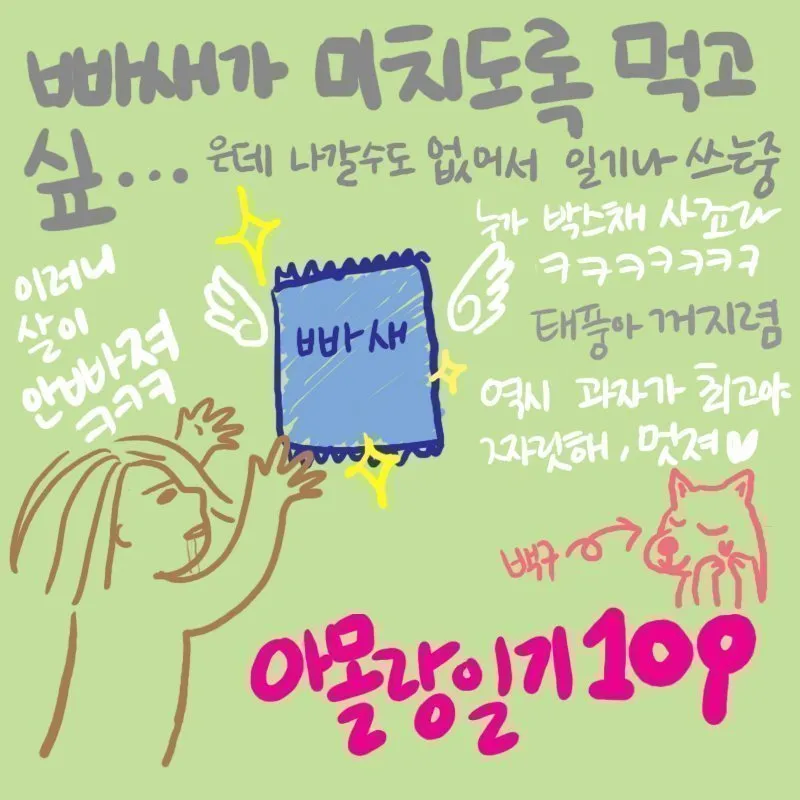 빠새가 미치도록 먹고
싶... 은데 나갈수도 없어서 일기나 쓰는중
누가 박스채 사죠라
ㅋㅋㅋㅋㅋㅋㅋ
이러니
살이
안빠져
ㅋㅋㅋ
빠새
태풍아 꺼지렴
역시 과자가 최고야
짜릿해, 멋져♥
백구
아몰랑일기109